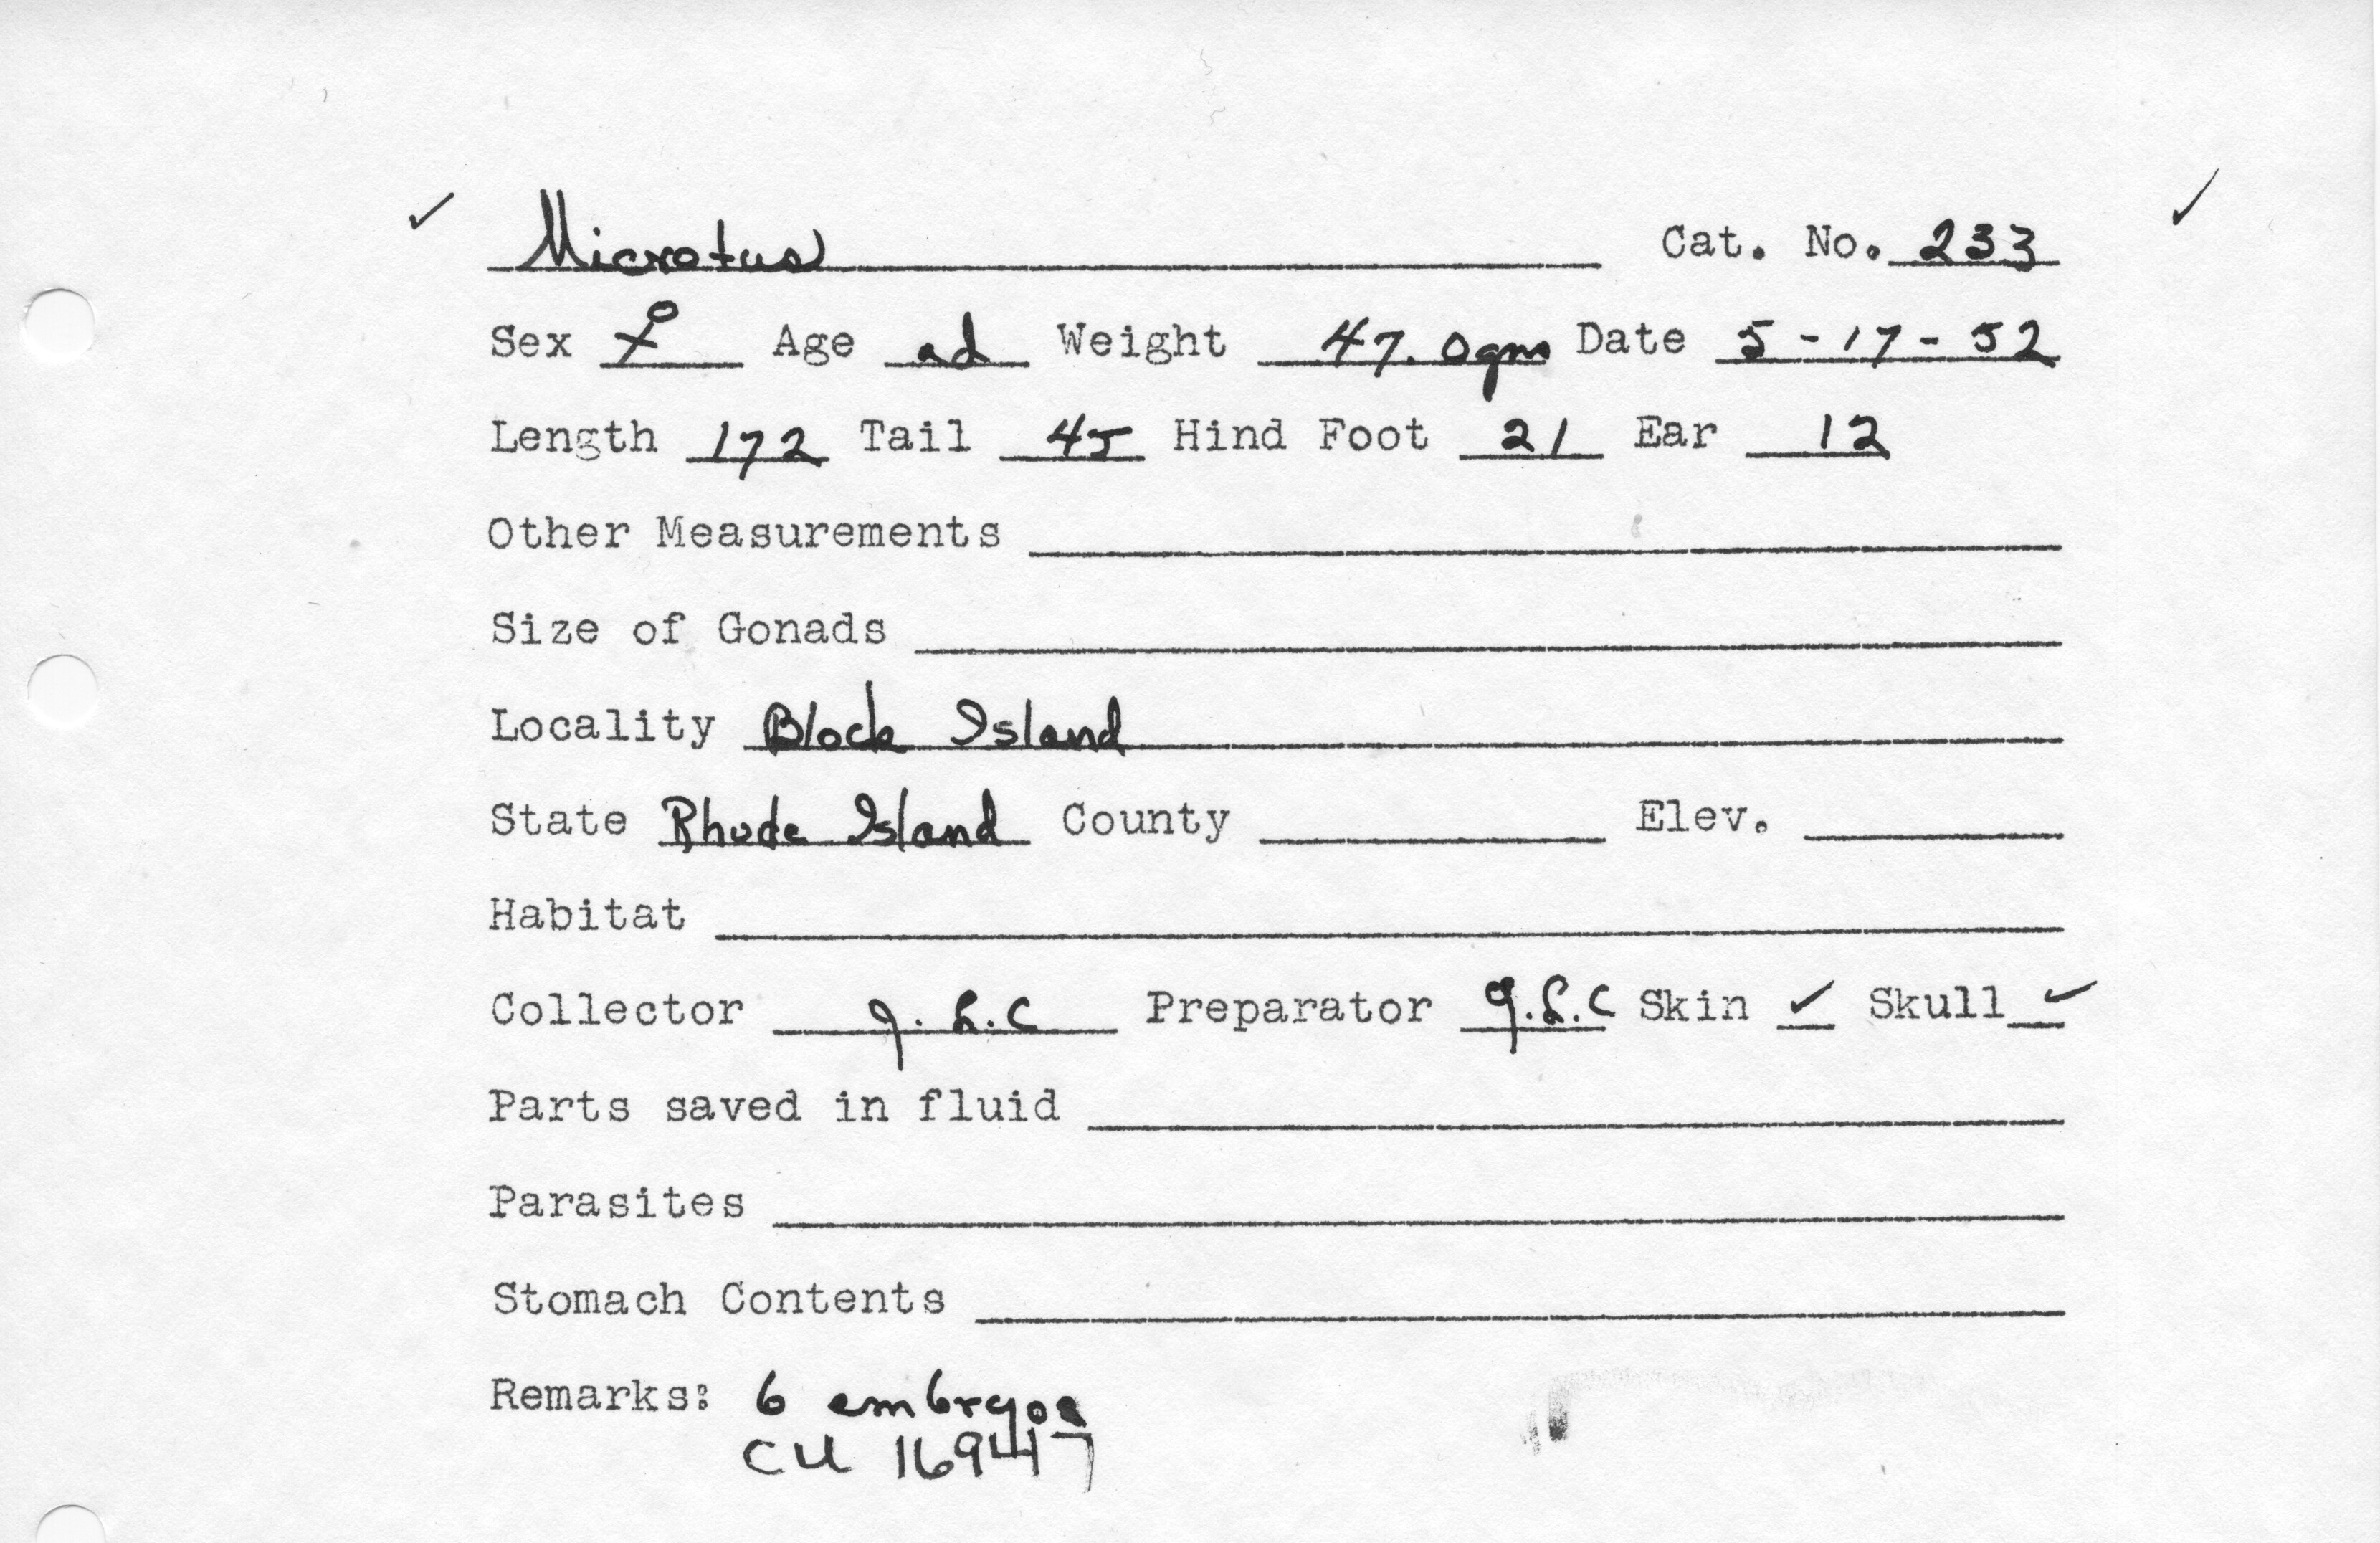 ✓ Microtus Cat. No. 233 ✓
Sex ♀ Age ad Weight 47.0gm Date 5-17-52
Length 172 Tail 45 Hind Foot 21 Ear 12
Other Measurements
Size of Gonads
Locality Block Island
State Rhode Island County Elev.
Habitat
Collector J.L.C Preparator J.L.C Skin ✓ Skull ✓
Parts saved in fluid
Parasites
Stomach Contents
Remarks: 6 embryos
CU 16947